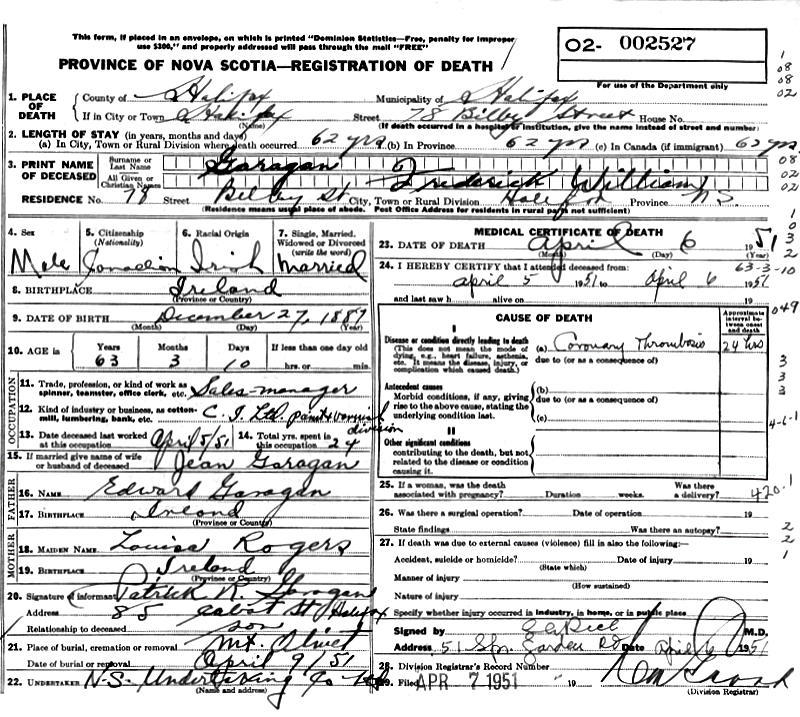 This form, if placed in an envelope, on which is printed "Dominion Statistics—Free, penalty for improper
use $300," and properly addressed will pass through the mail "FREE"
PROVINCE OF NOVA SCOTIA—REGISTRATION OF DEATH
02- 002527
For use of the Department only
1. PLACE OF DEATH
County of Halifax Municipality of Halifax
If in City or Town Halifax Street 78 Bilby Street House No.
(Name) (If death occurred in a hospital or institution, give the name instead of street and number)
2. LENGTH OF STAY (in years, months and days)
(a) In City, Town or Rural Division where death occurred 62 yrs (b) In Province 62 yrs (c) In Canada (if immigrant) 62 yrs
3. PRINT NAME OF DECEASED
Surname or Last Name Garagan
All Given or Christian Names Frederick William
RESIDENCE No. 78 Street Bilby St. City, Town or Rural Division Halifax Province N.S.
(Residence means usual place of abode. Post Office Address for residents in rural parts not sufficient)
4. Sex Male
5. Citizenship (Nationality) Canadian
6. Racial Origin Irish
7. Single, Married, Widowed or Divorced (write the word) Married
8. BIRTHPLACE Ireland
(Province or Country)
9. DATE OF BIRTH December 27, 1887
(Month) (Day) (Year)
10. AGE in Years 63 Months 3 Days 10 If less than one day old hrs. or min.
OCCUPATION
11. Trade, profession, or kind of work as spinner, teamster, office clerk, etc. Sales-manager
12. Kind of industry or business, as cotton-mill, lumbering, bank, etc. C.I. Ltd. paint & varnish division
13. Date deceased last worked at this occupation April 5/51 14. Total yrs. spent in this occupation 24
15. If married give name of wife or husband of deceased Jean Garagan
FATHER
16. NAME Edward Garagan
17. BIRTHPLACE Ireland
(Province or Country)
MOTHER
18. MAIDEN NAME Louisa Rogers
19. BIRTHPLACE Ireland
(Province or Country)
20. Signature of informant Patrick R. Garagan
Address 85 Cabot St Halifax
Relationship to deceased son
21. Place of burial, cremation or removal Mt. Olivet
Date of burial or removal April 9/51
22. UNDERTAKER N.S. Undertaking Co Ltd
(Name and address)
MEDICAL CERTIFICATE OF DEATH
23. DATE OF DEATH April 6 1951
(Month) (Day) (Year)
24. I HEREBY CERTIFY that I attended deceased from: 63-3-10
April 5 1951 to April 6 1951
and last saw h alive on 19
CAUSE OF DEATH
Approximate interval between onset and death
I
Disease or condition directly leading to death
(This does not mean the mode of dying, e.g., heart failure, asthenia, etc. It means the disease, injury, or complication which caused death.)
(a) Coronary Thrombosis 24 hrs
due to (or as a consequence of)
Antecedent causes
Morbid conditions, if any, giving rise to the above cause, stating the underlying condition last.
(b)
due to (or as a consequence of)
(c)
II
Other significant conditions
contributing to the death, but not related to the disease or condition causing it.
25. If a woman, was the death associated with pregnancy? Duration weeks. Was there a delivery?
26. Was there a surgical operation? Date of operation 19
State findings Was there an autopsy?
27. If death was due to external causes (violence) fill in also the following:—
Accident, suicide or homicide? Date of injury 19
(State which)
Manner of injury
(How sustained)
Nature of injury
Specify whether injury occurred in industry, in home, or in public place
Signed by M.D.
Address 51 Spr. Garden Rd Date April 6 1951
28. Division Registrar's Record Number
29. Filed APR 7 1951 19
(Division Registrar)
1
08
08
02
08
02
02
1
0
3
2
049
3
3
3
4-6-1
420.1
2
2
1